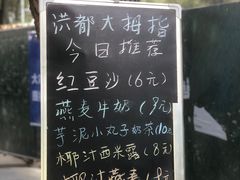 洪都大拇指
今日推荐
红豆沙(6元)
燕麦牛奶(9元)
芋泥小丸子奶茶(10元
椰汁西米露(8元)